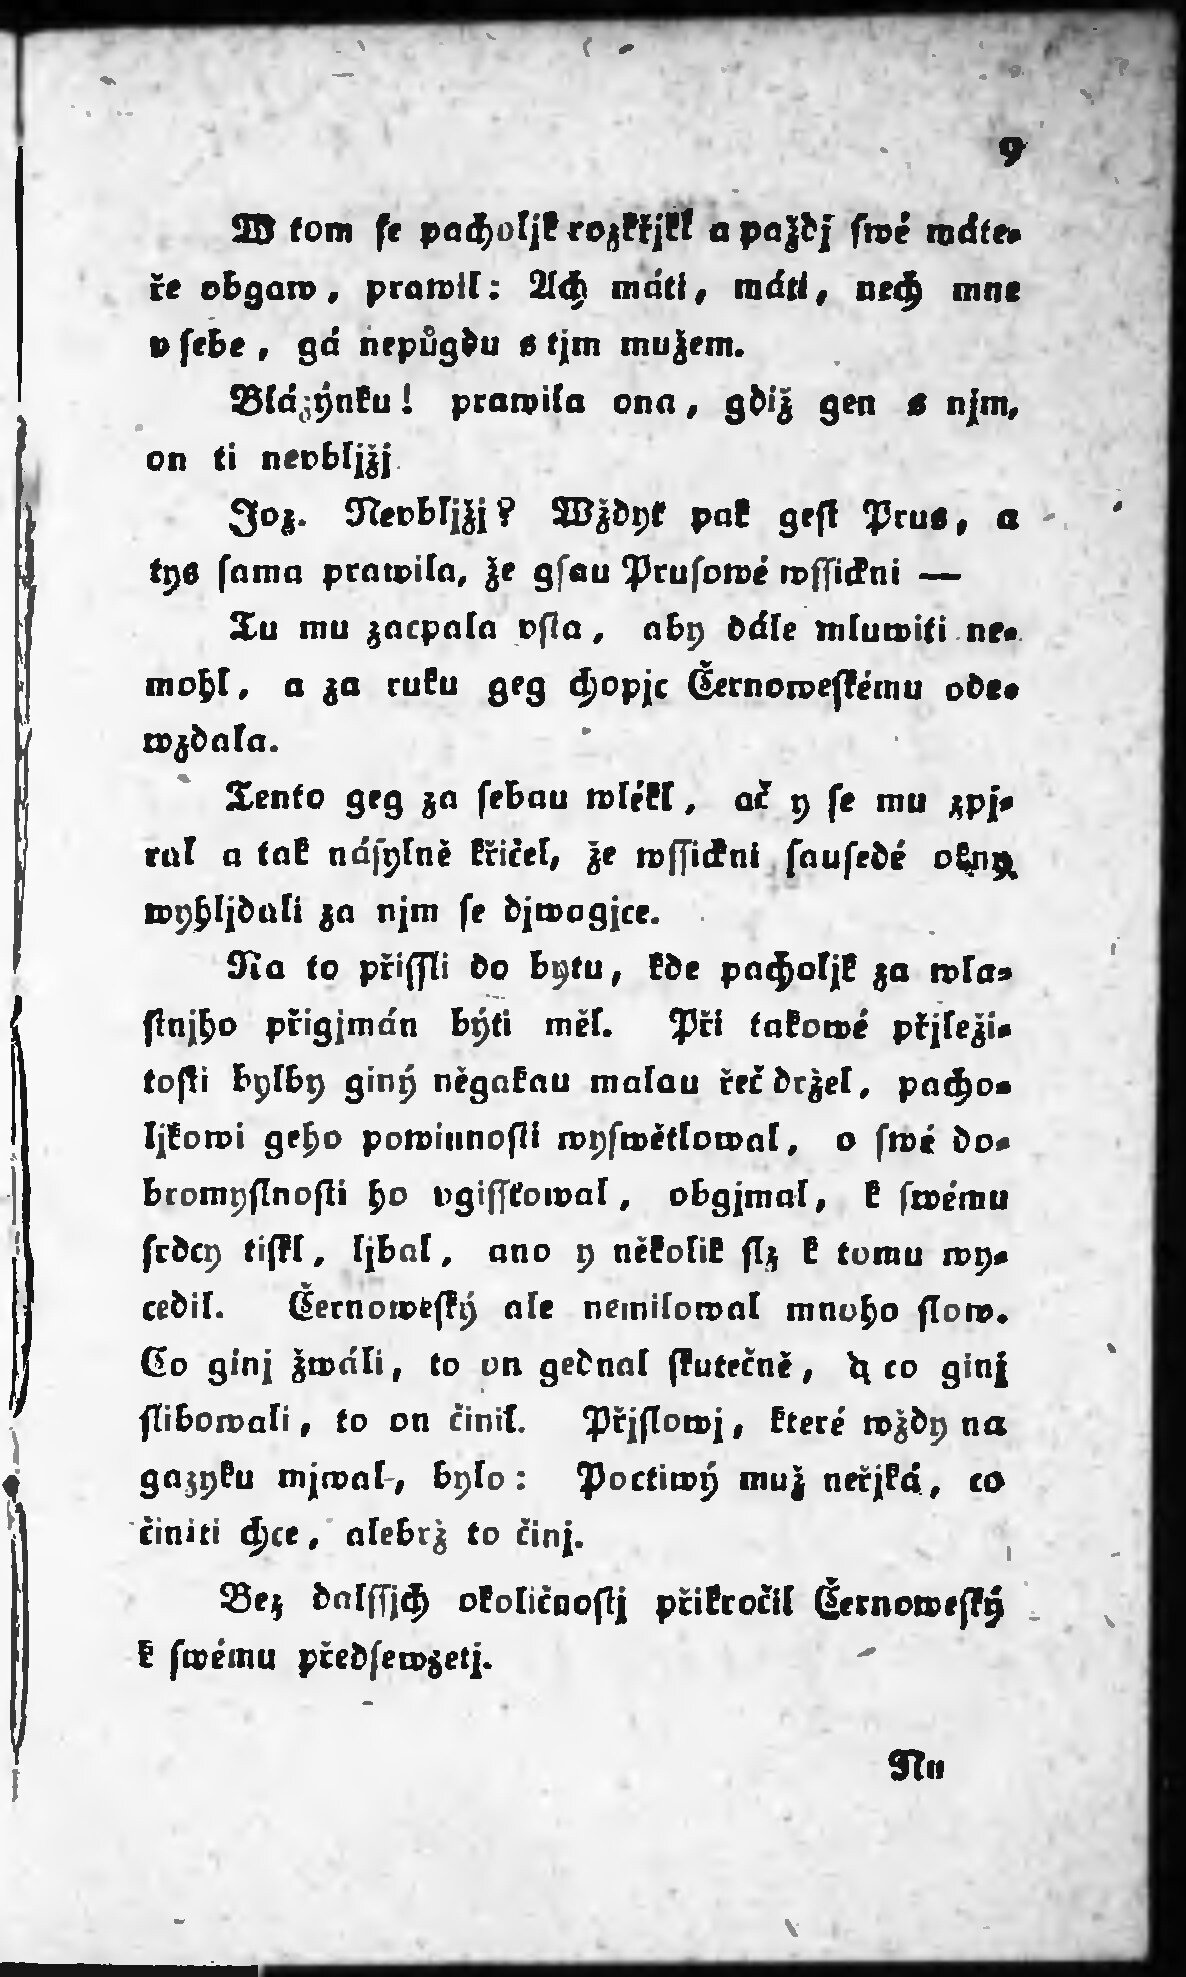 9
W tom ſe pacholjk rozkřjkl a pažďj ſwé máte⸗
ře obgaw, prawil: Ach máti, máti, nech mne
v ſebe, gá nepůgdu s tjm mužem.
Blázýnku! prawila ona, gdiž gen s njm,
on ti nevbljžj.
Joz. Nevbljžj? Wždyť pak geſt Prus, a
tys ſama prawila, že gſau Pruſowé wſſickni —
Tu mu zacpala vſta, aby dále mluwiti ne⸗
mohl, a za ruku geg chopjc Černoweſkému ode⸗
wzdala.
Tento geg za ſebau wlékl, ač y ſe mu zpj⸗
ral a tak náſylně křičel, že wſſickni ſauſedé okny
wyhljdali za njm ſe djwagjce.
Na to přiſſli do bytu, kde pacholjk za wla⸗
ſtnjho přigjmán býti měl. Při takowé přjleži⸗
toſti bylby giný něgakau malau řeč držel, pacho⸗
ljkowi geho powinnoſti wyſwětlowal, o ſwé do⸗
bromyſlnoſti ho vgiſſťowal, obgjmal, k ſwému
ſrdcy tiſkl, ljbal, ano y několik ſlz k tomu wy⸗
cedil. Černoweſký ale nemilowal mnoho ſlow.
Co ginj žwáli, to on gednal ſkutečně, a co ginj
ſlibowali, to on činil. Přjſlowj, které wždy na
gazyku mjwal, bylo: Poctiwý muž neřjká, co
činiti chce, alebrž to činj.
Bez dalſſjch okoličnoſtj přikročil Černoweſký
k ſwému předſewzetj.
Nu